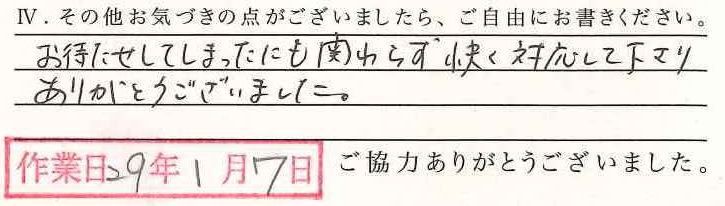 Ⅳ．その他お気づきの点がございましたら、ご自由にお書きください。
お待たせしてしまったにも関わらず快く対応して下さり
ありがとうございました。
作業日29年1月7日 ご協力ありがとうございました。